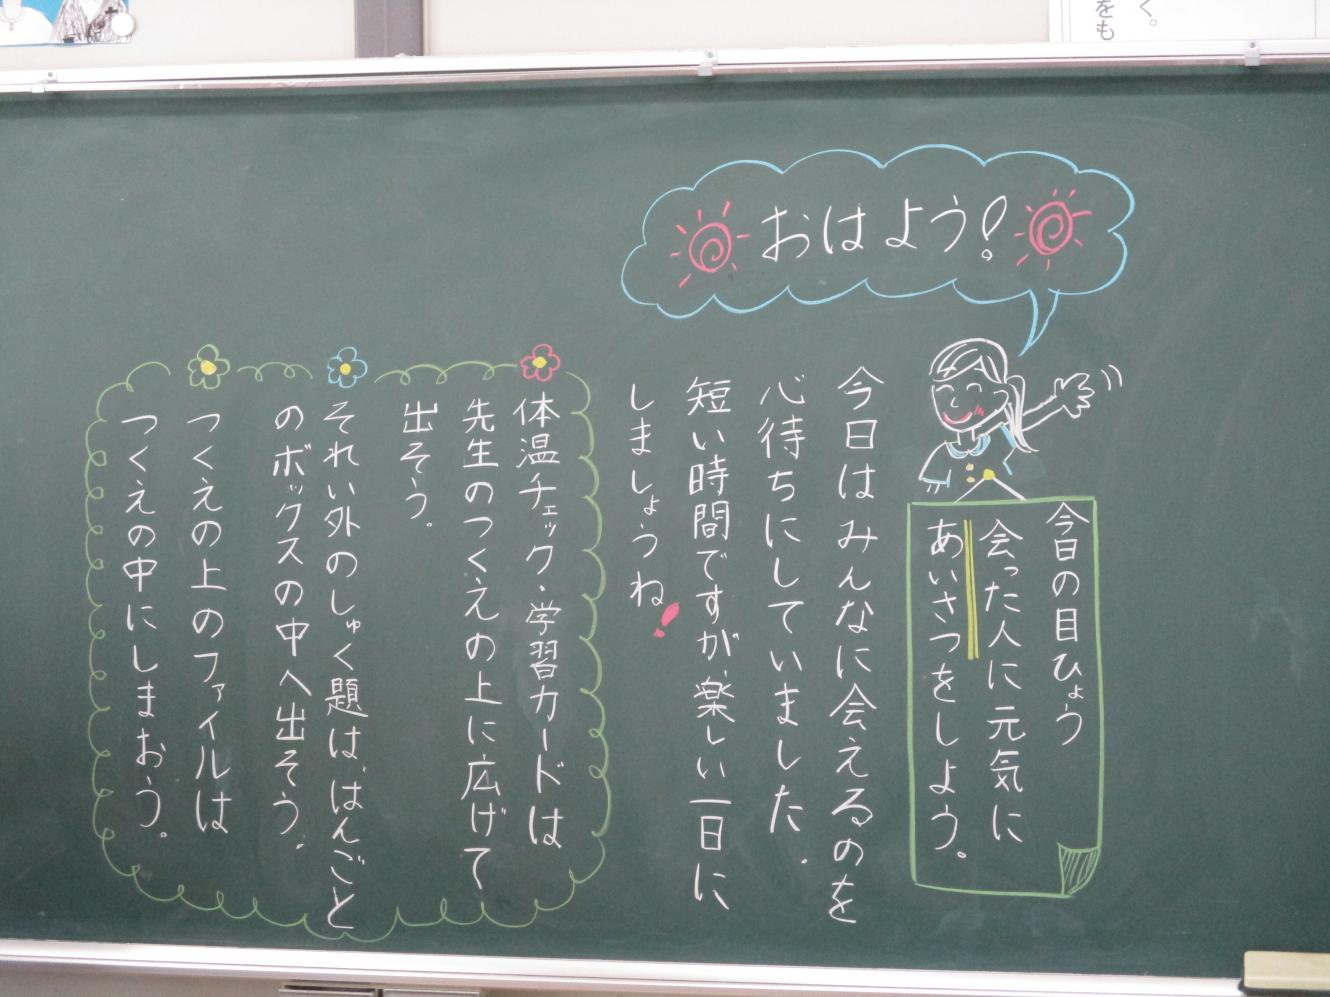 おはよう!
今日の目ひょう
会った人に元気に
あいさつをしよう。
今日はみんなに会えるのを
心待ちにしていました。
短い時間ですが、楽しい一日に
しましょうね!
体温チェック・学習カードは
先生のつくえの上に広げて
出そう。
それい外のしゅく題は、はんごと
のボックスの中へ出そう。
つくえの上のファイルは
つくえの中にしまおう。
く。
をも